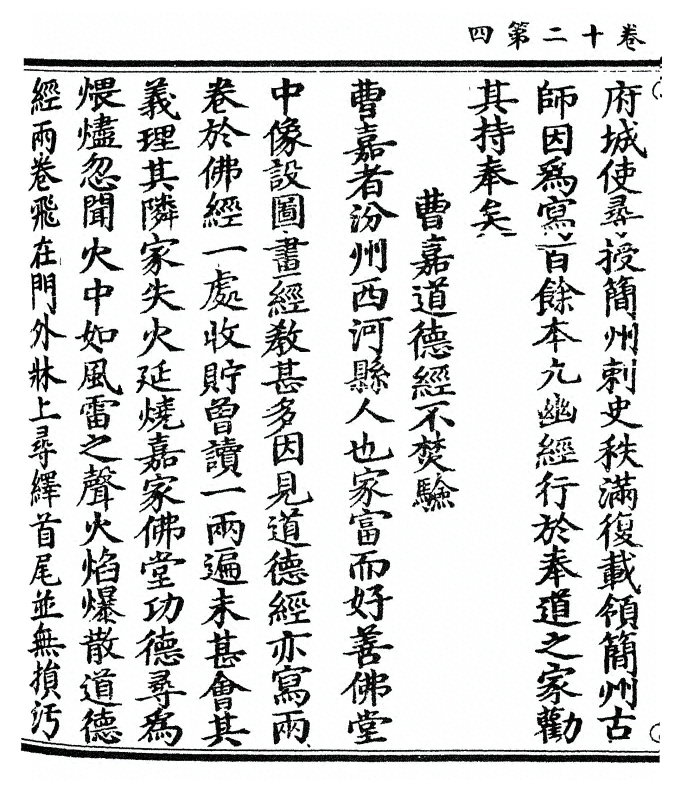 卷十二第四
府城使尋授簡州刺史秩滿復載領簡州古
師因爲寫百餘本九幽經行於奉道之家勸
其持奉矣
曹嘉道德經不焚驗
曹嘉者汾州西河縣人也家富而好善佛堂
中像設圖畫經教甚多因見道德經亦寫兩
卷於佛經一處收貯曾讀一兩遍未甚會其
義理其隣家失火延燒嘉家佛堂功德尋爲
煨燼忽聞火中如風雷之聲火焰爆散道德
經兩卷飛在門外牀上尋繹首尾並無損污